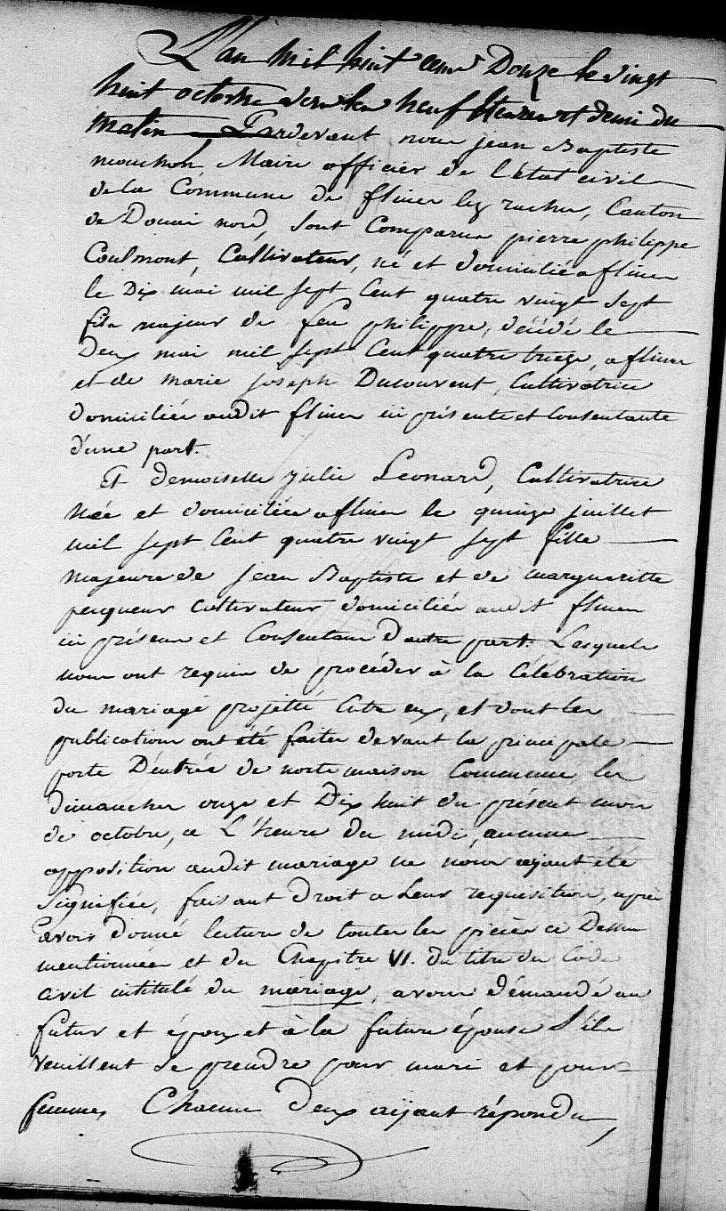 L'an mil huit cent Douze le vingt
huit octobre vers les neuf heures et demi du
matin Pardevant nous jean Baptiste
mouchon, Maire officier de l'état civil
de la Commune de flines lez raches, Canton
de Douai nord, sont Comparus pierre philippe
Coulmont, Cultivateur, né et domicilié a flines
le Dix mai mil sept Cent quatre vingt sept
fils majeur de feu philippe, décédé le
Deux mai mil sept Cent quatre treize, a flines
et de marie joseph Ducouvent, Cultivatrice
domiciliée audit flines ici présente et Consentante
d'une part.
Et demoiselle julie Leonard, Cultivatrice
née et domiciliée a flines le quinze juillet
mil sept Cent quatre vingt sept fille
majeure de jean Baptiste et de margueritte
pecqueur Cultivateur domiciliés audit flines
ici présens et Consentans D'autre part. Lesquels
nous ont requis de procéder à la Célébration
du mariage projetté entre eux, et dont les
publications ont été faites devant la principale
porte D'entrée de notre maison Commune les
dimanches onze et Dix huit du présent mois
de octobre, a L'heure du midi, aucune
opposition audit mariage ne nous ayant été
signifiée, faisant Droit a Leur requisition, après
avoir donné lecture de toutes les pièces ci Dessus
mentionnées et du Chapitre VI. du titre du Code
civil intitulé du mariage, avons démandé au
futur et époux et à la future épouse S'ils
veuillent se prendre pour mari et pour
femmes Chacun Deux aÿant répondu,